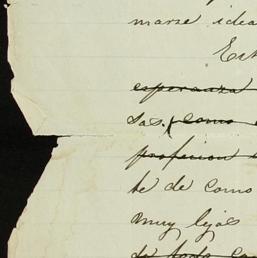 marse idea
Est
esperanza
sas. como
profesion
te de como
muy lejos
da todo ca